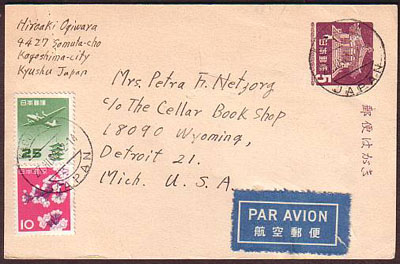 Hiroaki Ogiwara
4427 Somuta-cho
Kagoshima-city
Kyushu Japan
Mrs. Petra Fr. Netzorg
c/o The Cellar Book Shop
18090 Wyoming,
Detroit 21.
Mich. U. S. A.
日本郵便
5
JAPAN
郵便はがき
日本郵便
25
JAPAN
10
PAR AVION
航空郵便